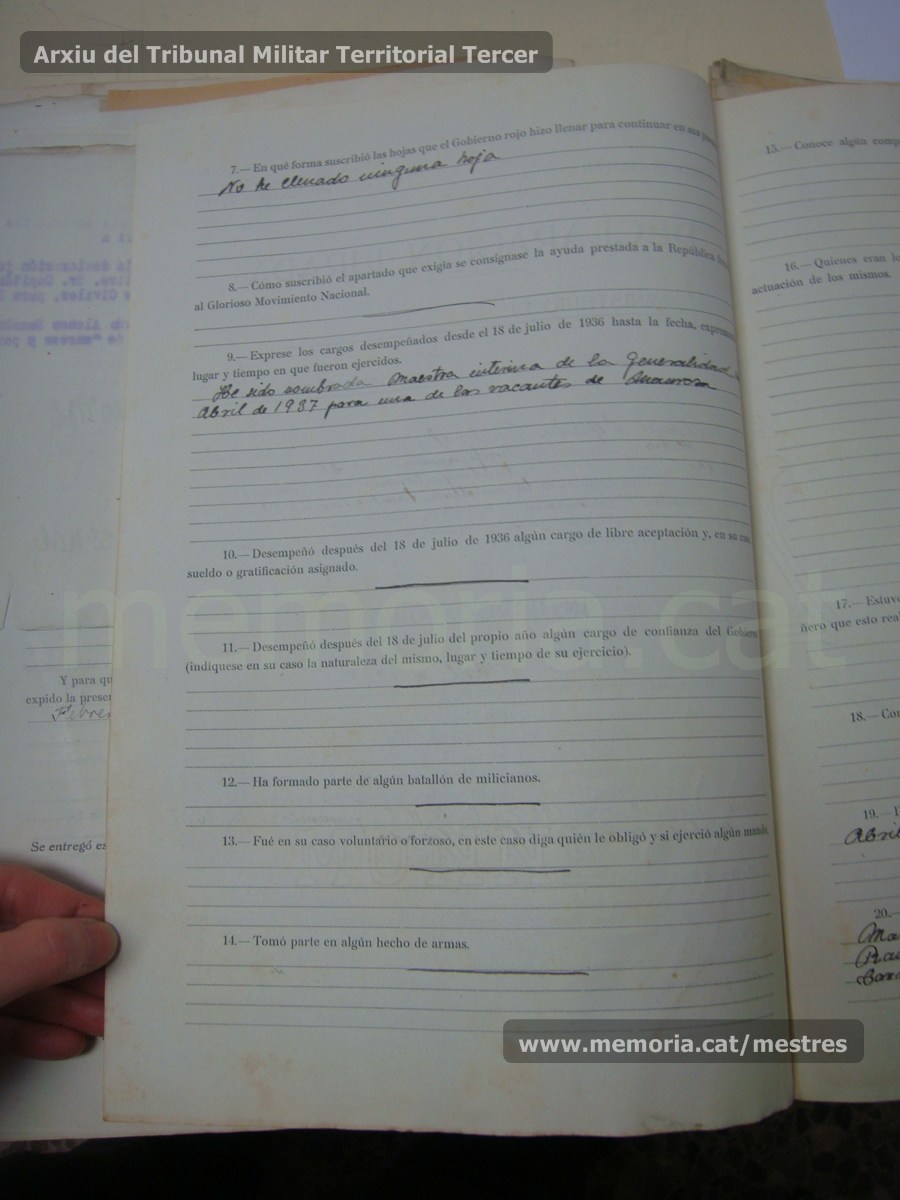 Arxiu del Tribunal Militar Territorial Tercer
7.— En qué forma suscribió las hojas que el Gobierno rojo hizo llenar para continuar en sus
No he llenado ninguna hoja
8.— Cómo suscribió el apartado que exigía se consignase la ayuda prestada a la República
al Glorioso Movimiento Nacional.
9.— Exprese los cargos desempeñados desde el 18 de julio de 1936 hasta la fecha,
lugar y tiempo en que fueron ejercidos.
He sido nombrada Maestra interina de la Generalidad
Abril de 1937 para una de las vacantes de Manresa
10.— Desempeñó después del 18 de julio de 1936 algún cargo de libre aceptación y, en su
sueldo o gratificación asignado.
11.— Desempeñó después del 18 de julio del propio año algún cargo de confianza del
(indíquese en su caso la naturaleza del mismo, lugar y tiempo de su ejercicio).
12.— Ha formado parte de algún batallón de milicianos.
13.— Fué en su caso voluntario o forzoso, en este caso diga quién le obligó y si ejerció algún mando
14.— Tomó parte en algún hecho de armas.
memoria.cat
www.memoria.cat/mestres
Y para qu
expido la presen
Febrer
Se entregó es
15.— Conoce algún comp
16.— Quienes eran lo
actuación de los mismos.
17.— Estuvo
ñero que esto rea
18.— Co
19.—
Abril
20.—
Ma